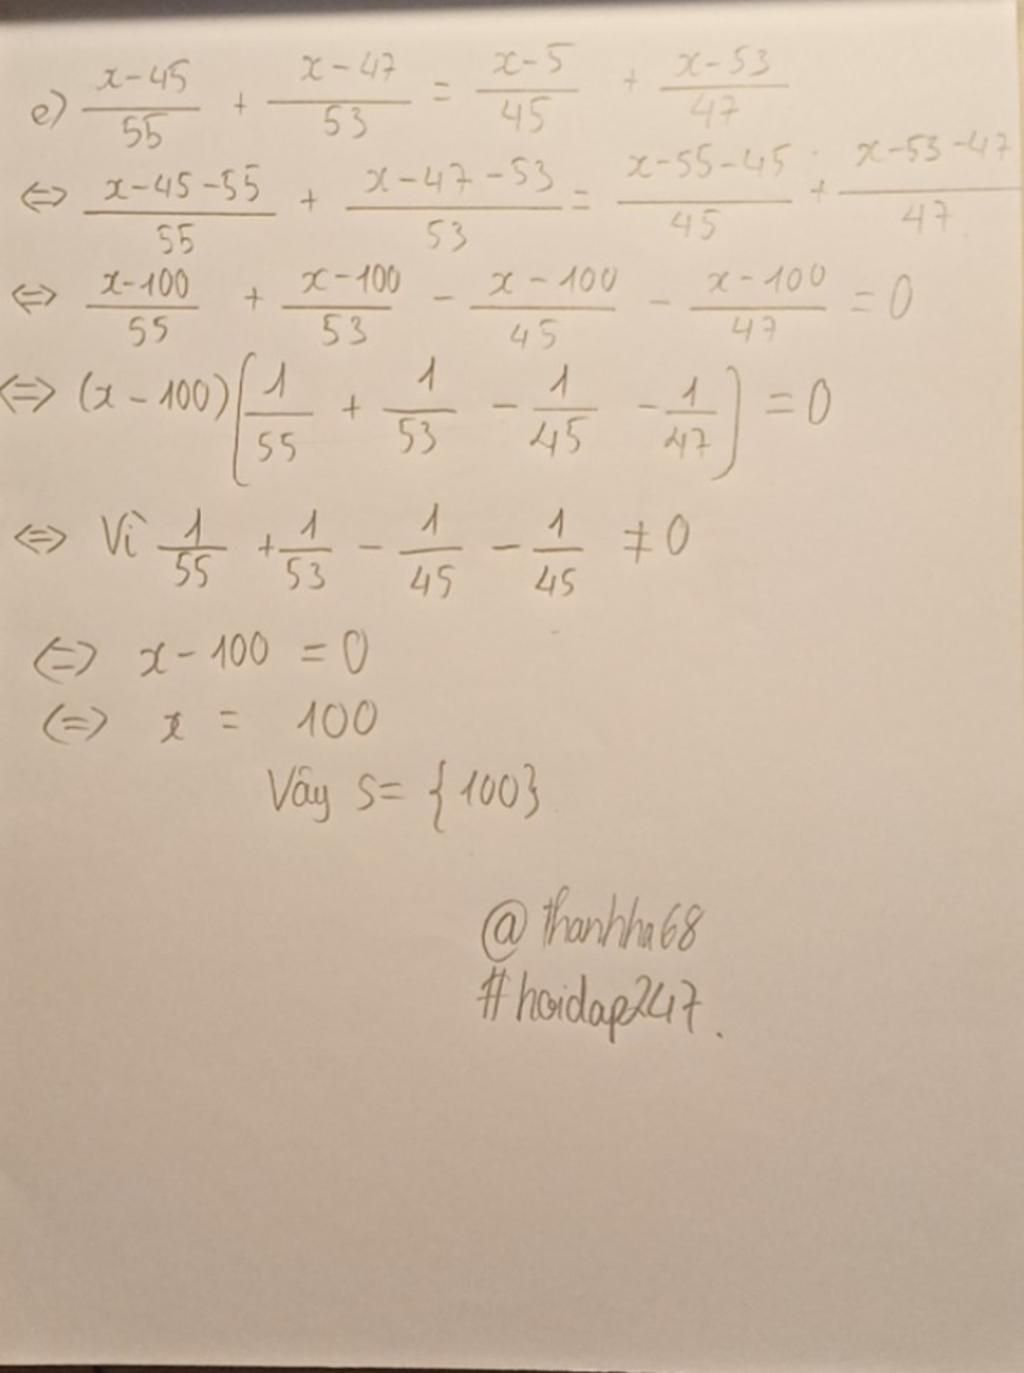 e) (x-45)/55 + (x-47)/53 = (x-5)/45 + (x-53)/47
⇔ (x-45-55)/55 + (x-47-53)/53 = (x-55-45)/45 + (x-53-47)/47
⇔ (x-100)/55 + (x-100)/53 - (x-100)/45 - (x-100)/47 = 0
⇔ (x-100)(1/55 + 1/53 - 1/45 - 1/47) = 0
⇔ Vì 1/55 + 1/53 - 1/45 - 1/45 ≠ 0
⇔ x-100 = 0
⇔ x = 100
Vây S = {100}
@thanhha68
#hoidap247.